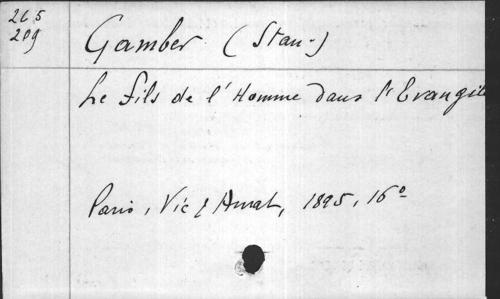 265
209
Gamber (Stan.)
Le Fils de l'Homme dans l'Evangile
Paris, Vic & Amat, 1895, 16°